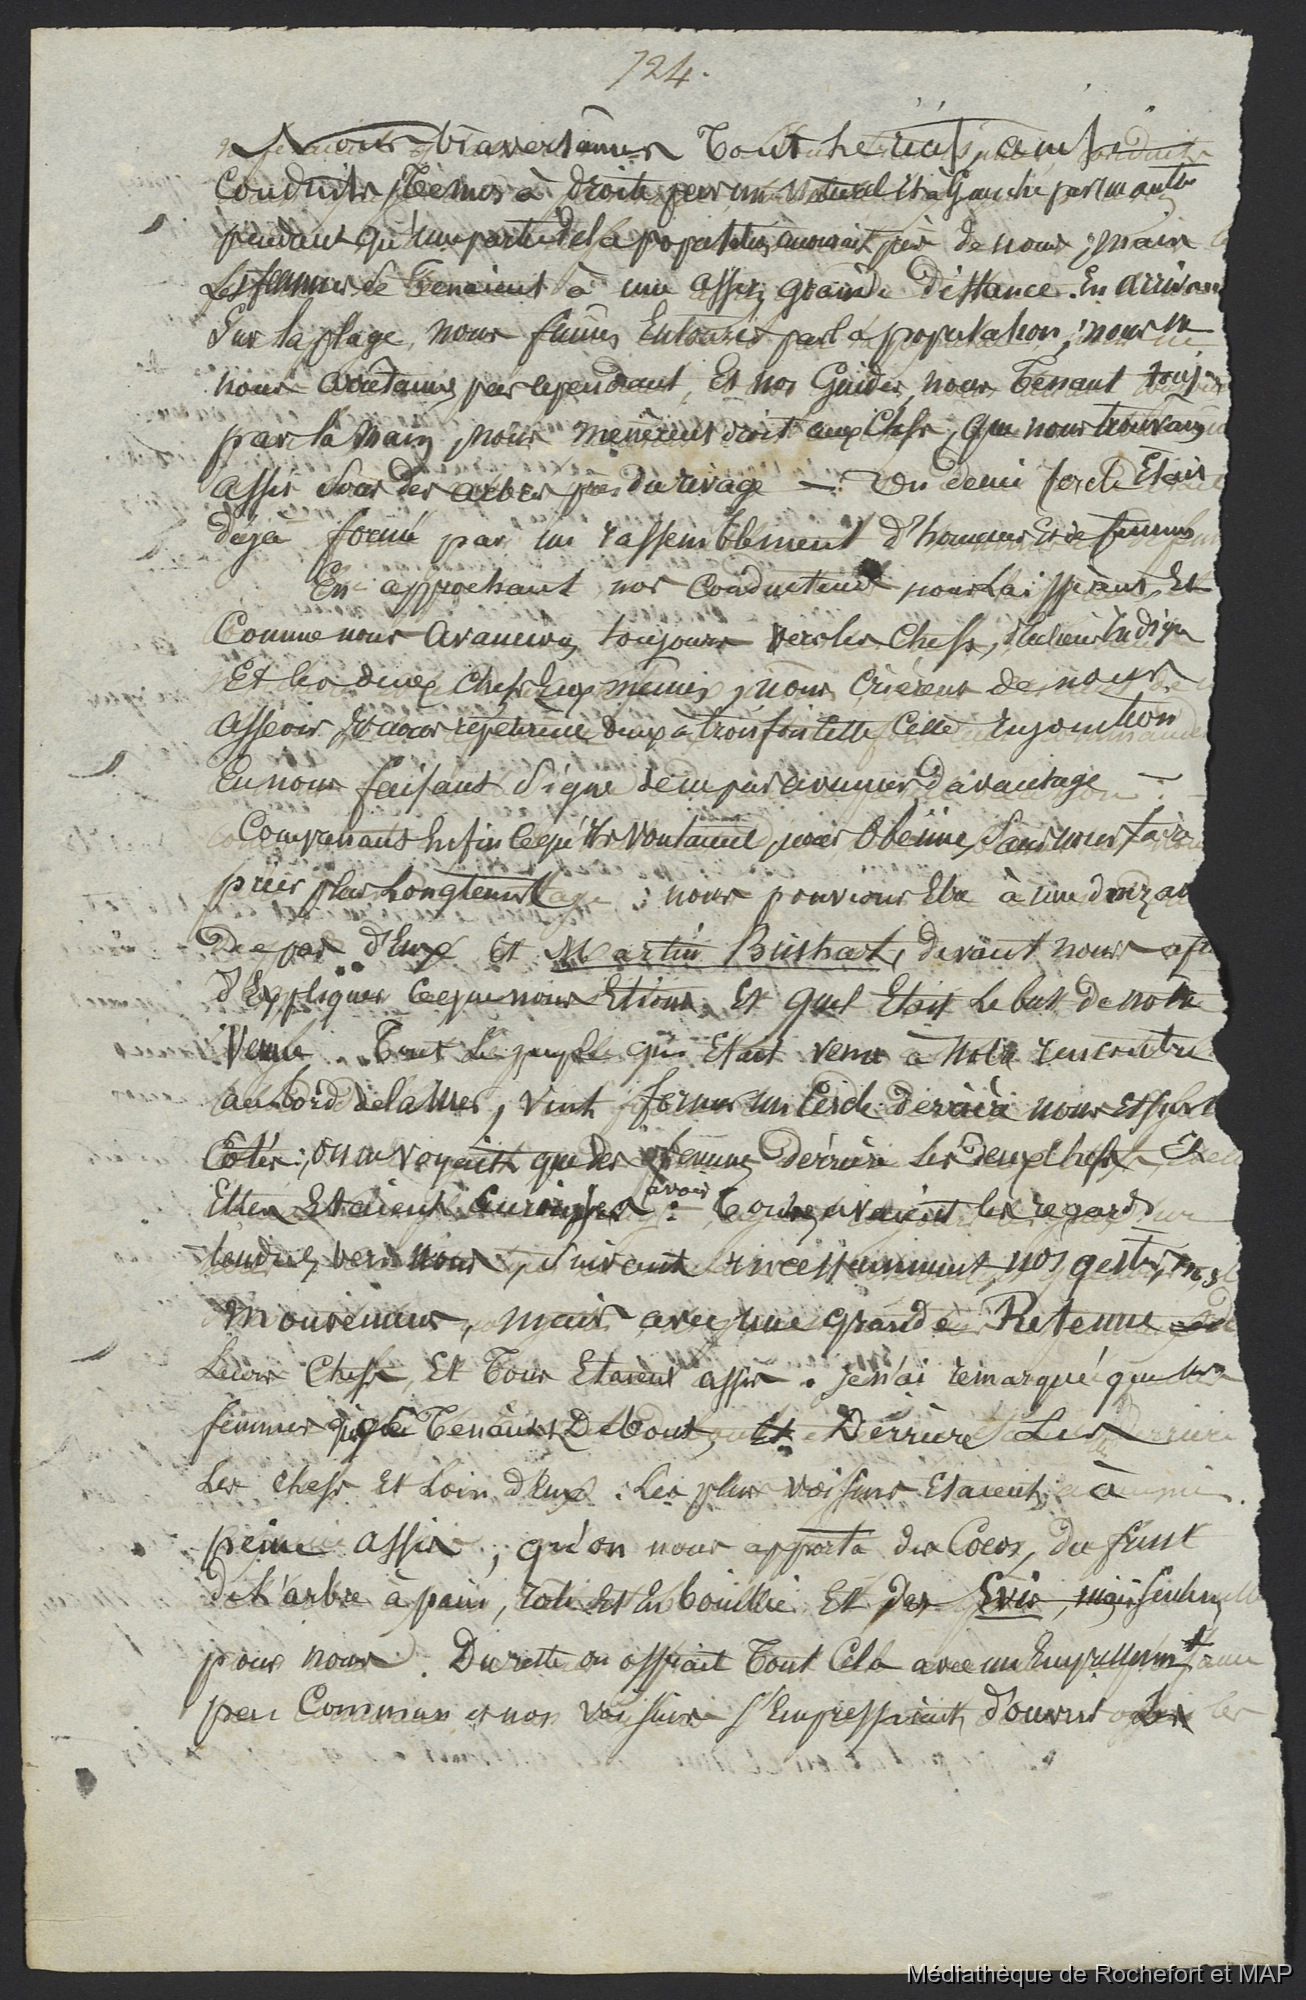 724.
Nous traversâmes Tout le récif, ainsi
Conduits, tenus à droite par un naturel Et à Gauche par un autre
pendant qu'une partie de la population courait près de nous ; mais
Les femmes se tenaient à une assez grande Distance. En arrivant
Sur la plage, nous fûmes Entourés par la population ; nous ne
nous arrêtames pas cependant, Et nos Guides nous Tenant touj
par la main, nous menèrent droit aux Chefs, que nous trouvâmes
assis sous des arbres près du rivage — Un demi cercle Etait
déjà formé par un rassemblement d'hommes Et de femmes
En approchant nos Conducteurs nous Laissèrent, Et
Comme nous avancions toujours vers les Chefs,
Et les deux Chefs Eux mêmes, nous crièrent de nous
asseoir, Et nous répétèrent deux à trois fois cette injonction
En nous faisant Signe de ne pas avancer Davantage
Comprenant Enfin ce qu'ils voulaient, nous Obéîmes, Sans nous faire
prier plus Longtemps ; nous pouvions Etre à une douzai
De pas d'Eux Et Martin Bushart, devant nous afin
d'Expliquer Ce que nous Etions, Et quel Etait Le but de notre
Venue. Tout le peuple qui Etait venu à notre rencontre
au bord de la Mer, vint former un Cercle Derrière nous Et sur l
Côtés ; on ne voyait que des femmes derrière les deux Chefs, Et
Elles Etaient Curieuses avoir : Toutes avaient les regards
tendus vers Nous, Suivant incessamment nos gestes, nos
Mouvemens, mais avec une grande Retenue
Leurs Chefs, Et Tous Etaient assis. je n'ai remarqué que les
femmes qui se Tenaient Debout, Et Derrière Les
Les chefs Et Loin d'Eux. Les plus voisins Etaient à
peine assis, qu'on nous apporta des Cocos, du fruit
de L'arbre à pain, roti Et En bouillie Et des Evis, mais seulem
pour nous. Du reste on offrait Tout Cela avec un Empressemt
peu Commun et nos voisins s'Empressaient d'ouvrir les
Médiathèque de Rochefort et MAP